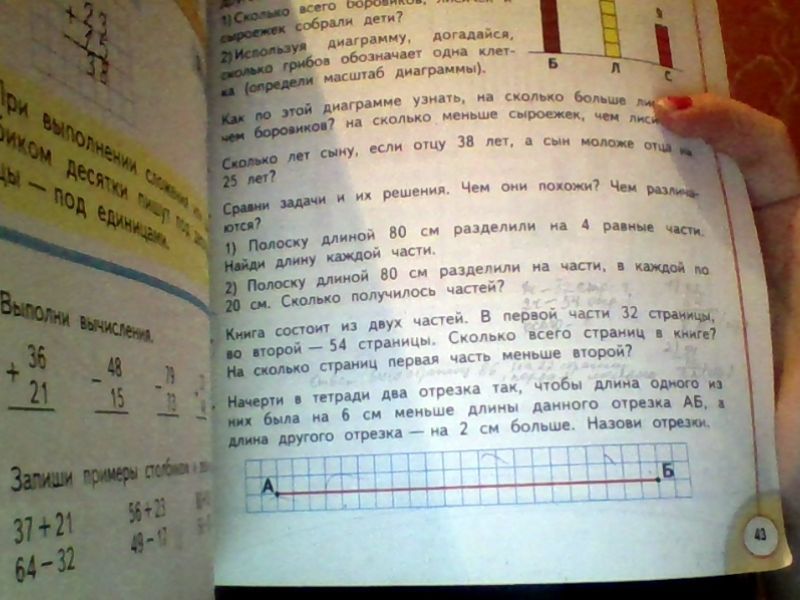 + 23
15
38
При выполнении сложения
десятки пишут под
— под единицами.
Выполни вычисления.
+ 36
21
− 48
15
− 79
33
Запиши примеры столбиком и
37 + 21
56 + 23
64 − 32
49 − 17
1) Сколько всего боровиков,
сыроежек собрали дети?
2) Используя диаграмму, догадайся,
сколько грибов обозначает одна клет-
ка (определи масштаб диаграммы).
Б Л С
Как по этой диаграмме узнать, на сколько больше
чем боровиков? на сколько меньше сыроежек, чем
Сколько лет сыну, если отцу 38 лет, а сын моложе отца на
25 лет?
Сравни задачи и их решения. Чем они похожи? Чем различа-
ются?
1) Полоску длиной 80 см разделили на 4 равные части.
Найди длину каждой части.
2) Полоску длиной 80 см разделили на части, в каждой по
20 см. Сколько получилось частей?
Книга состоит из двух частей. В первой части 32 страницы,
во второй — 54 страницы. Сколько всего страниц в книге?
На сколько страниц первая часть меньше второй?
Начерти в тетради два отрезка так, чтобы длина одного из
них была на 6 см меньше длины данного отрезка АБ, а
длина другого отрезка — на 2 см больше. Назови отрезки.
А Б
43